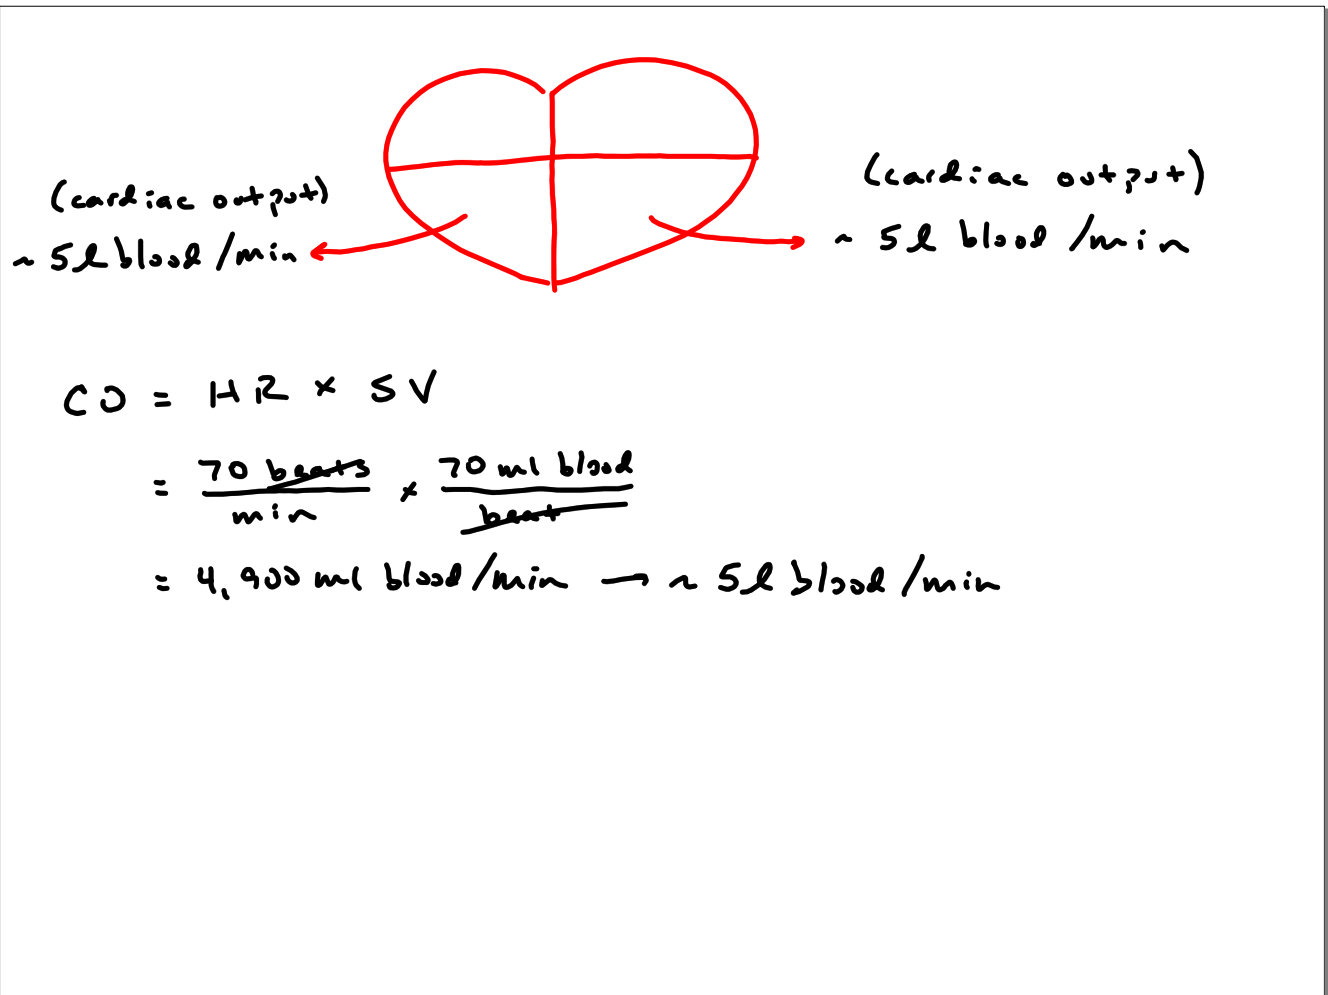 (cardiac output)
~ 5l blood /min
(cardiac output)
~ 5l blood /min
CO = HR × SV
= 70 beats/min × 70 ml blood/beat
= 4,900 ml blood/min — ~ 5l blood/min